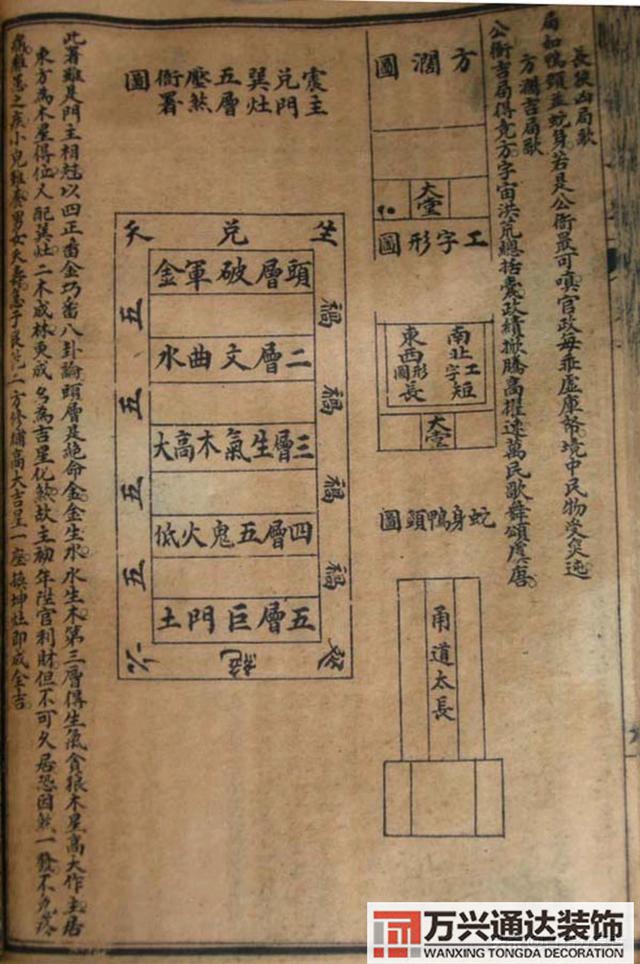 長狹凶局歌
局如鴨頭並蛇身若是公衙最可嗔官政每乖虛庫帑境中民物受災迍
方濶吉局歌
公衙吉局得寬方宇宙洪荒總括囊政績掀騰高擢速萬民歌舞頌虞唐
方濶圖
大堂
工字形圖
南北短
工字形圖
東西長
大堂
蛇身鴨頭圖
甬道太長
震主
兌門
巽灶
五層
壓煞
衙署
圖
生 兌 天
頭層破軍金
禍 五
二層文曲水
禍 五
三層生氣木高大
禍 五
四層五鬼火低
禍 五
五層巨門土
此署雖是門主相尅以四正番金巧番八卦論頭層是絕命金金生水水生木第三層得生氣貪狼木星高大作主居
東方為木星得位又配巽灶二木成林更成為吉星化煞故主初年陞官利財但不可久居恐因煞一發不免疼
痛難忍之疾小兒難養男女夭壽二方修補高大吉星一座換坤灶即成全吉
万兴通达装饰
WANXING TONGDA DECORATION